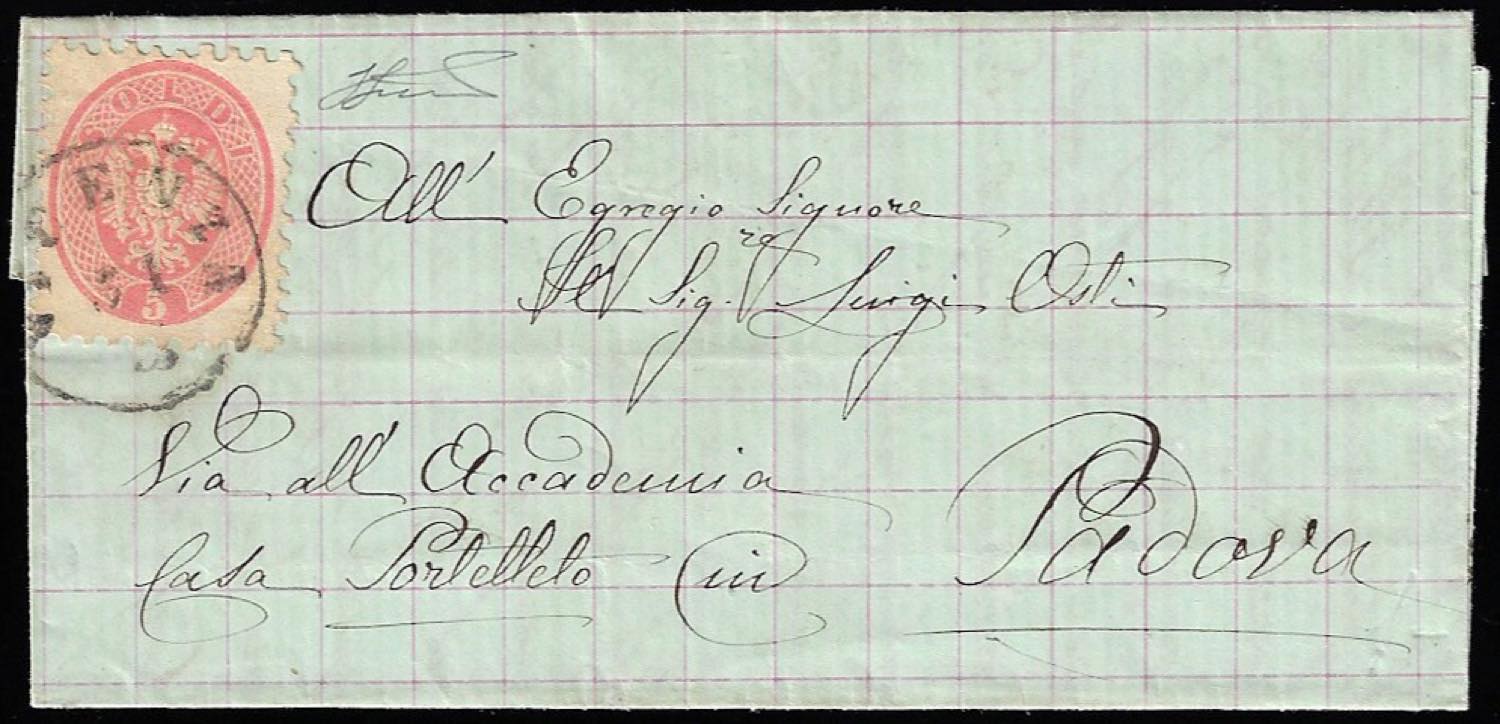 SOLDI
VICENZA
5
All' Egregio Signore
Il Sig.r Luigi Osti
Via all' Accademia
Casa Portelleto in Padova